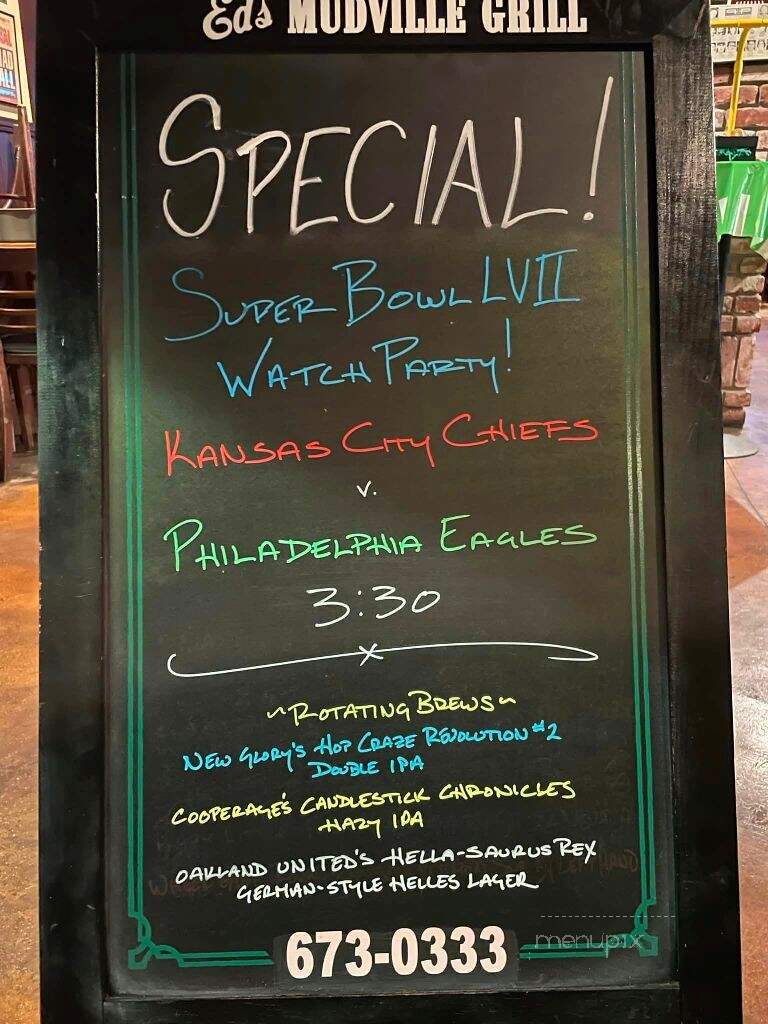 Ed's MUDVILLE GRILL
SPECIAL!
SUPER BOWL LVII
WATCH PARTY!
KANSAS CITY CHIEFS
V.
PHILADELPHIA EAGLES
3:30
~ROTATING BREWS~
NEW GLORY'S HOP CRAZE REVOLUTION #2
DOUBLE IPA
COOPERAGE'S CANDLESTICK CHRONICLES
HAZY IPA
OAKLAND UNITED'S HELLA-SAURUS REX
GERMAN-STYLE HELLES LAGER
673-0333
menupix